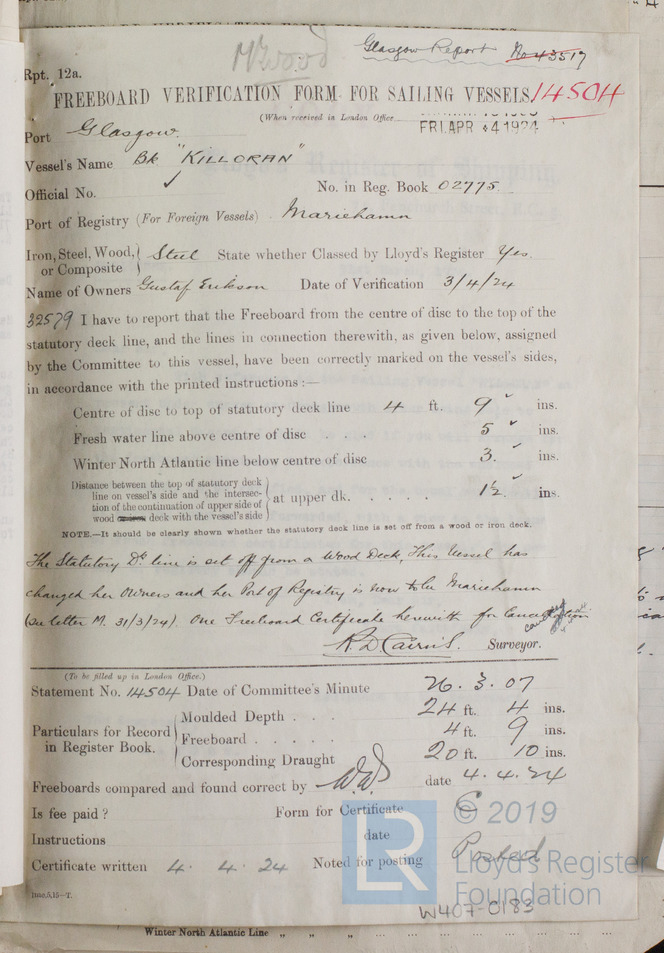 Mr Wood
Glasgow Report No 43517
Rpt. 12a.
FREEBOARD VERIFICATION FORM FOR SAILING VESSELS 14504
(When received in London Office
FRI. APR 4 1924
Port Glasgow
Vessel's Name Bk "KILLORAN"
Official No. ✓ No. in Reg. Book 02775
Port of Registry (For Foreign Vessels) Mariehamn
Iron, Steel, Wood, or Composite Steel State whether Classed by Lloyd's Register Yes.
Name of Owners Gustaf Erikson Date of Verification 3/4/24
32579 I have to report that the Freeboard from the centre of disc to the top of the
statutory deck line, and the lines in connection therewith, as given below, assigned
by the Committee to this vessel, have been correctly marked on the vessel's sides,
in accordance with the printed instructions :—
Centre of disc to top of statutory deck line 4 ft. 9 ✓ ins.
Fresh water line above centre of disc . . . 5 ✓ ins.
Winter North Atlantic line below centre of disc 3. ✓ ins.
Distance between the top of statutory deck
line on vessel's side and the intersec-
tion of the continuation of upper side of
wood deck with the vessel's side
at upper dk. . . . . 1½ ✓ ins.
NOTE.—It should be clearly shown whether the statutory deck line is set off from a wood or iron deck.
The Statutory Dk line is set off from a Wood Deck, This Vessel has
changed her Owners and her Port of Registry is now to be Mariehamn
(See letter M. 31/3/24). One Freeboard Certificate herewith for Cancellation
R. D. Cairns. Surveyor.
(To be filled up in London Office.)
Statement No. 14504 Date of Committee's Minute 26. 3. 07
Particulars for Record in Register Book.
Moulded Depth . . . 24 ft. 4 ins.
Freeboard . . . . . 4 ft. 9 ins.
Corresponding Draught 20 ft. 10 ins.
Freeboards compared and found correct by W.W. date 4. 4. 24
Is fee paid ? Form for Certificate C
Instructions date
Certificate written 4. 4. 24 Noted for posting Posted
© 2019
LR Lloyd's Register
Foundation
W407-0183
Winter North Atlantic Line „ „ „